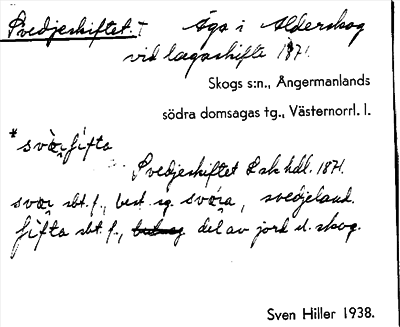 Svedjeskiftet. Äga i Alderskog
vid lagaskifte 1871.
Skogs s:n., Ångermanlands
södra domsagas tg., Västernorrl. l.
*svär fifta
Svedjeskiftet Lsk hdl. 1871.
svär sbt. f., best. sg. svöra, svedjeland.
fifta sbt. f., del av jord el. skog.
Sven Hiller 1938.